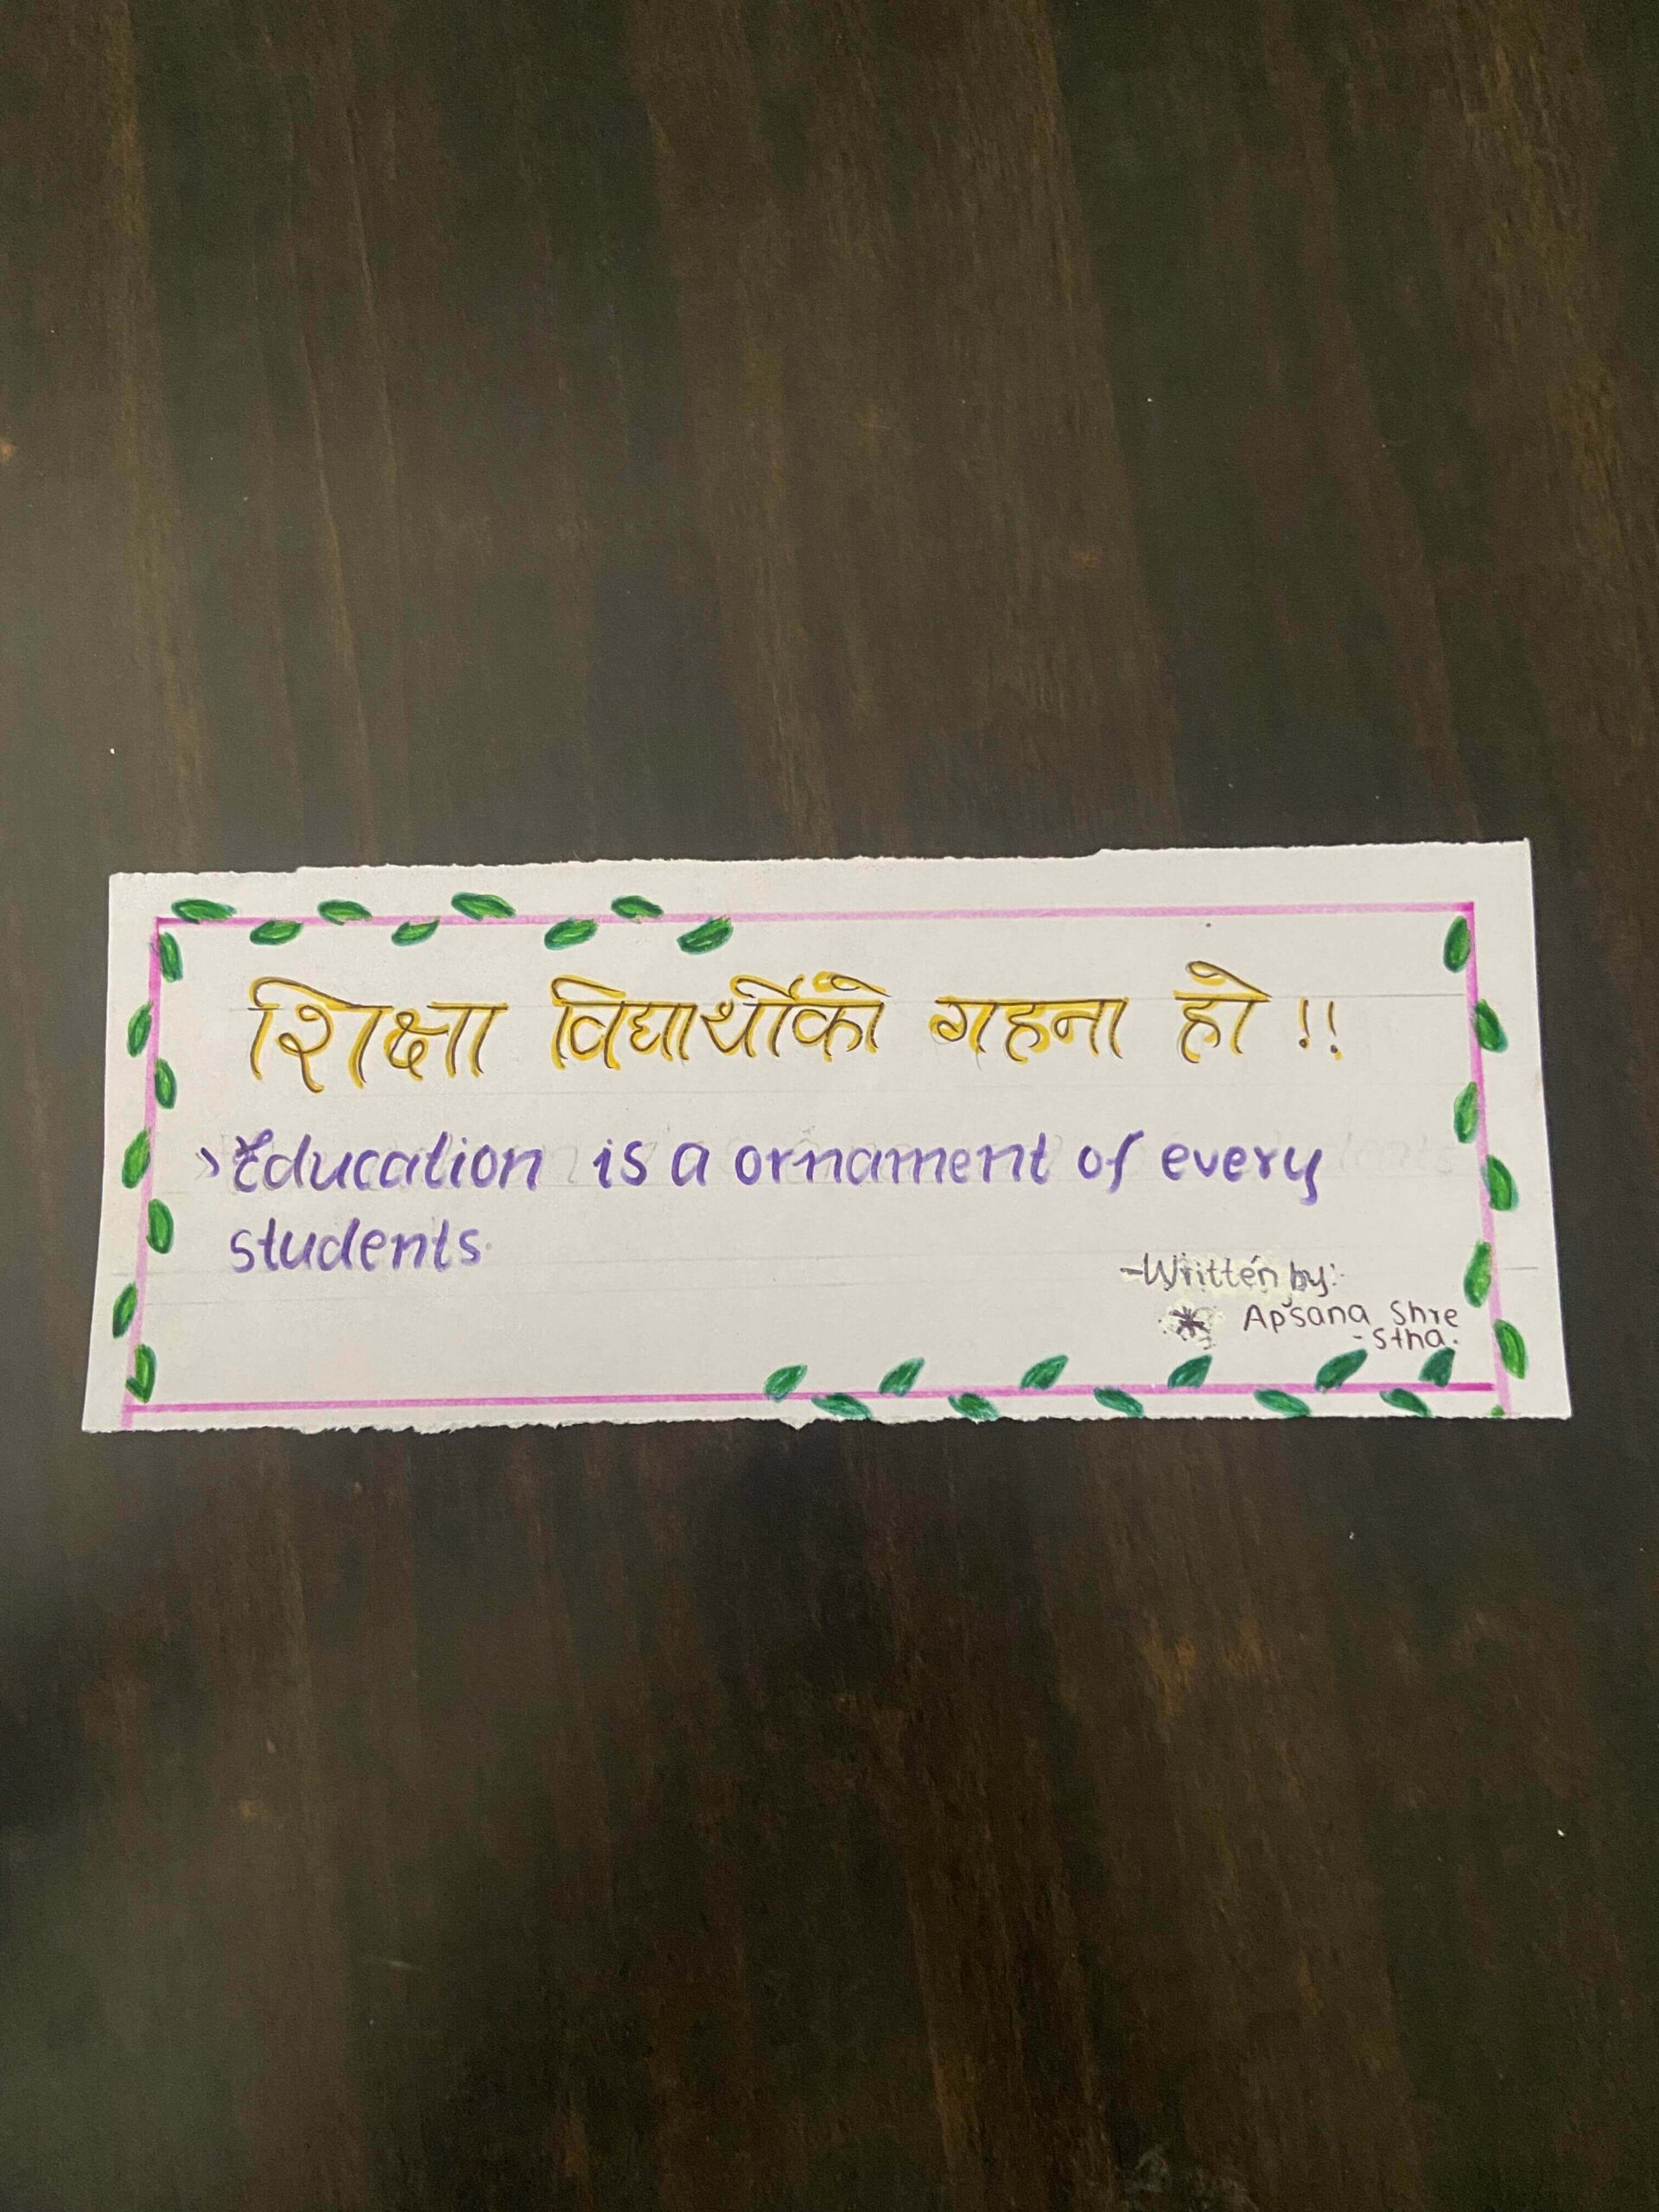 शिक्षा विद्यार्थीको गहना हो !!
›Education is a ornament of every
students.
-Written by:-
* Apsana Shre
-stha.